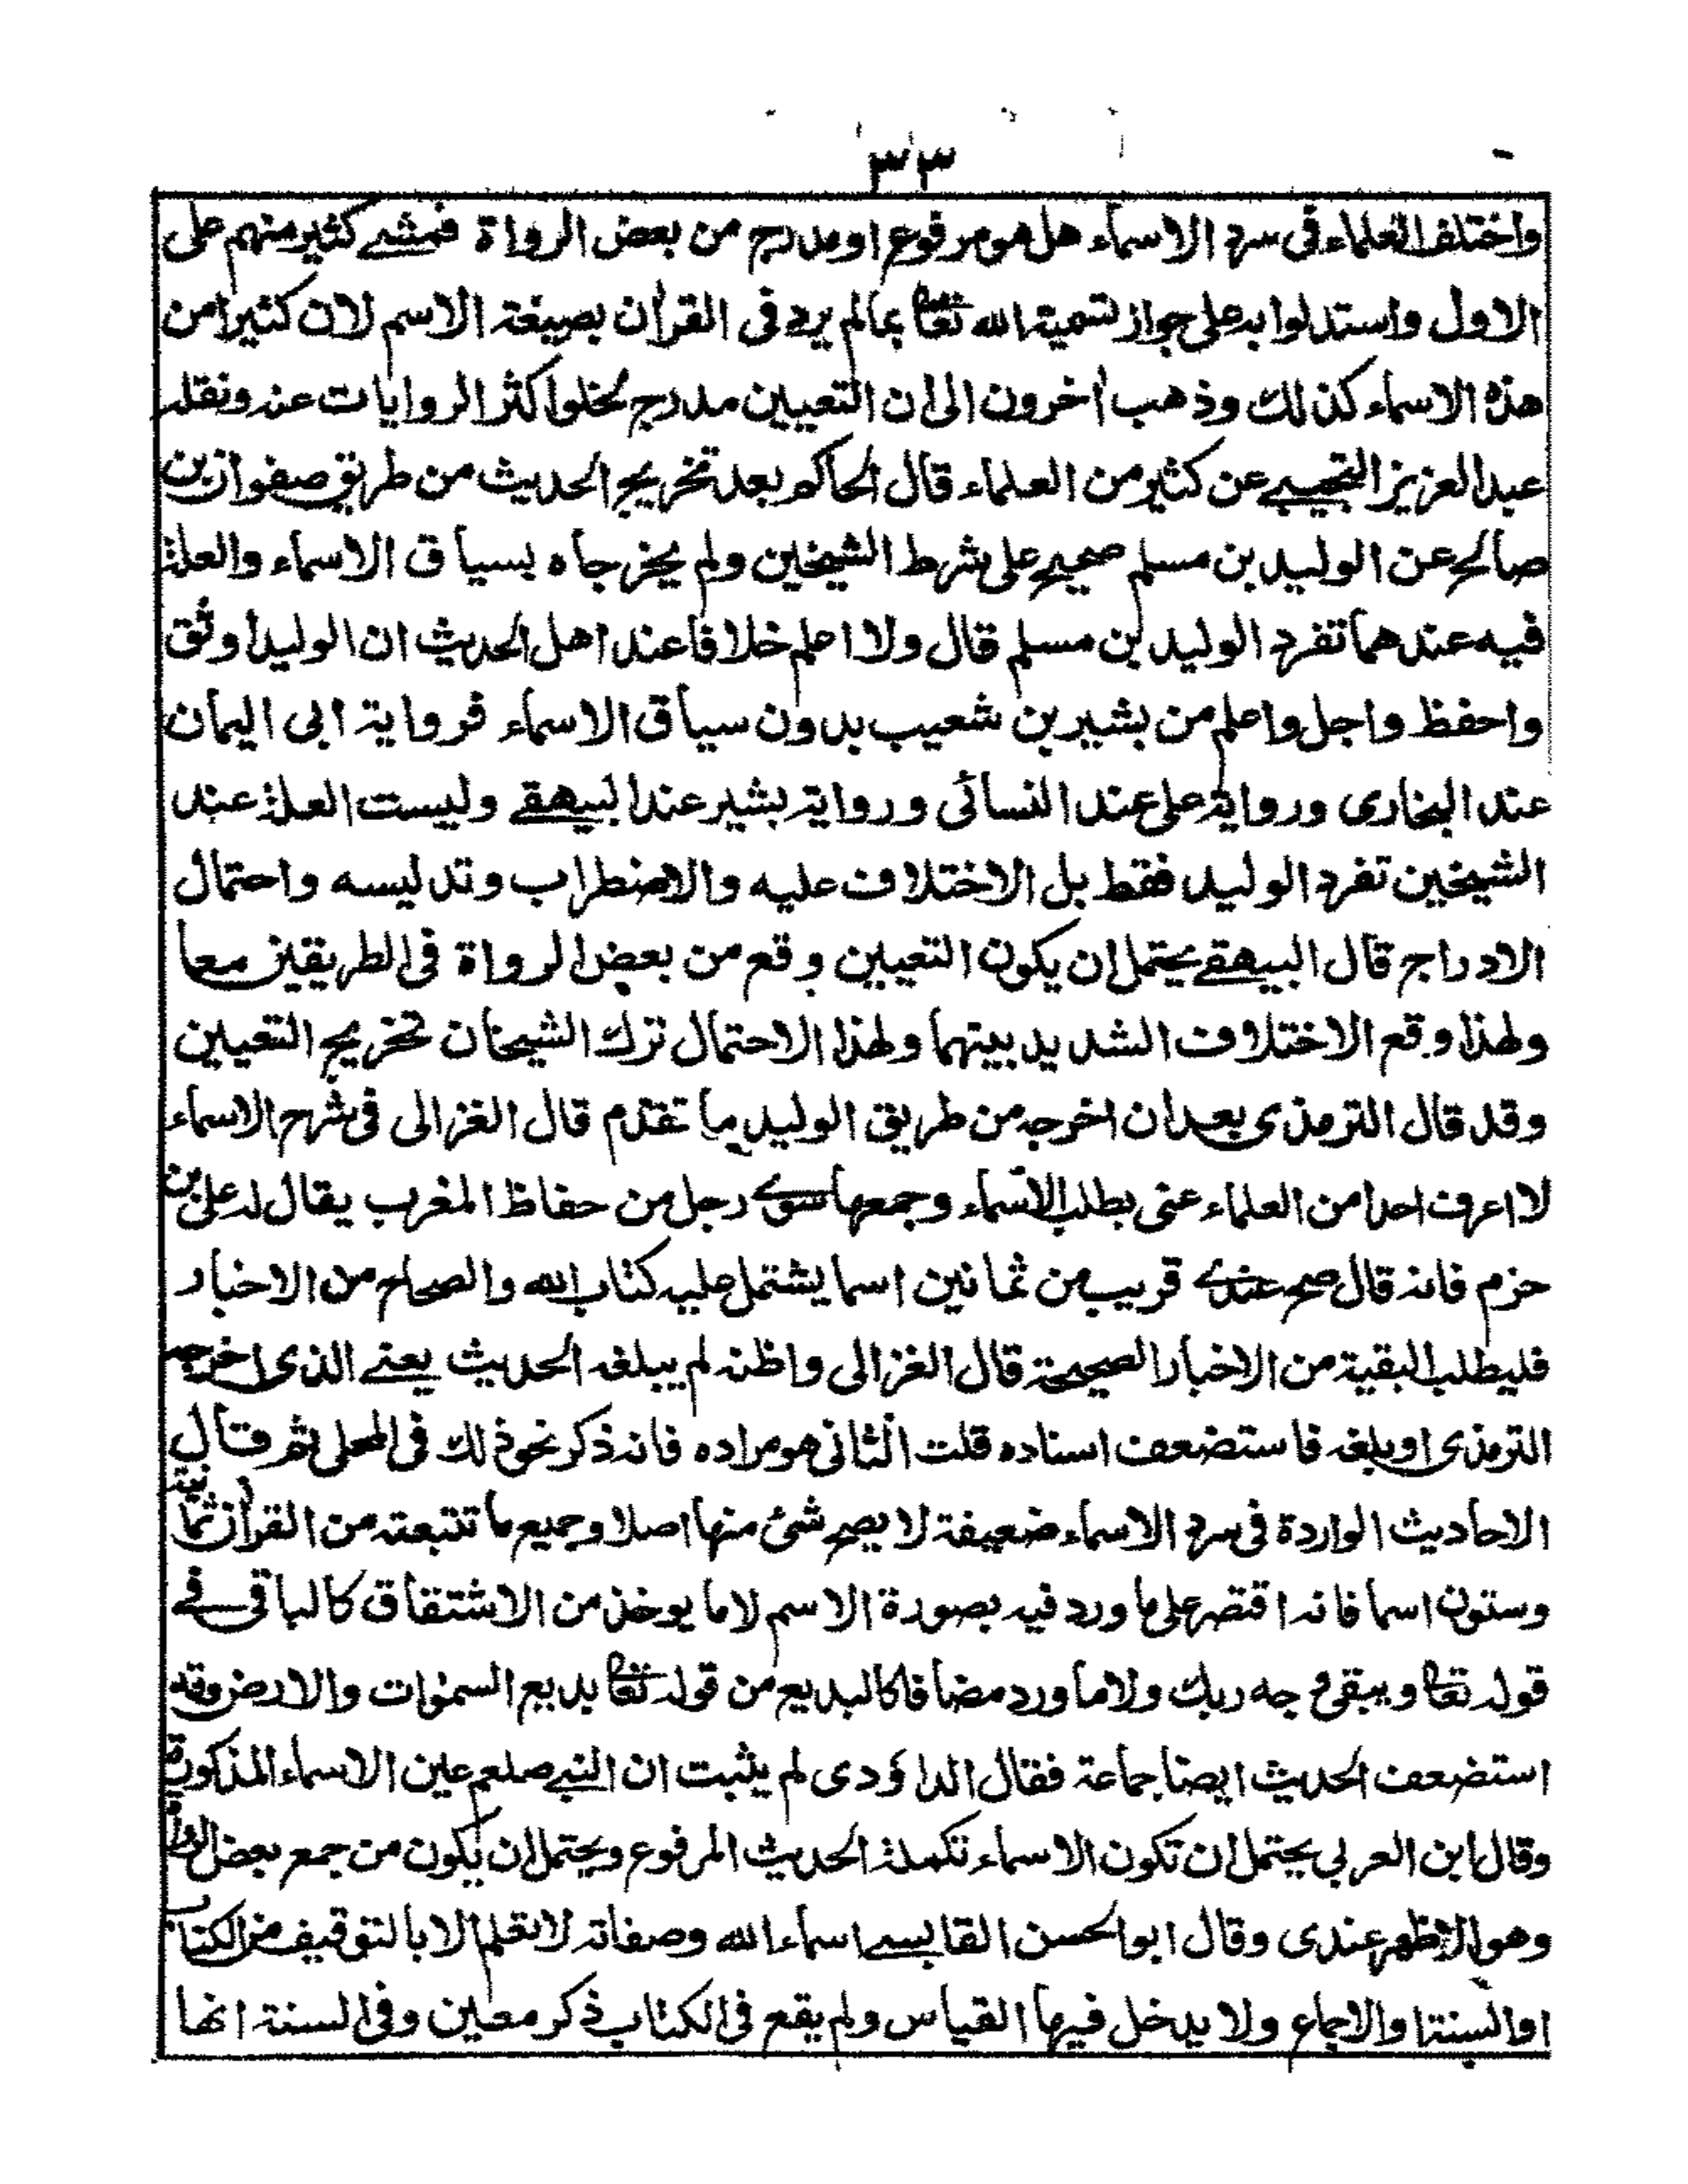 ٣٣
واختلف العلماء فى سرد الاسماء هل هو مرفوع او مدرج من بعض الرواة فمشے كثير منهم على
الاول واستدلوا به على جواز تسمية الله تعا بما لم يرد فى القرأن بصيغة الاسم لان كثيرا من
هذه الاسماء كذلك وذهب أخرون الى ان التعيين مدرج لخلوا كثر الروايات عنه ونقله
عبد العزيز النخجبے عن كثير من العلماء قال الحاكم بعد تخريج الحديث من طريق صفوان بن
صالح عن الوليد بن مسلم صحيح على شرط الشيخين ولم يخرجاه بسياق الاسماء والعلة
فيه عندهما تفرد الوليد بن مسلم قال ولا اعلم خلافا عند اهل الحديث ان الوليد أوثق
واحفظ واجل واعلم من بشير بن شعيب بدون سياق الاسماء فرواية ابى اليمان
عند البخارى ورواية على عند النسائى ورواية بشير عند البيهقے وليست العلة عند
الشيخين تفرد الوليد فقط بل الاختلاف عليه والاضطراب وتدليسه واحتمال
الادراج قال البيهقے يحتمل ان يكون التعيين وقع من بعض الرواة فى الطريقين معا
ولهذا وقع الاختلاف الشديد بينهما ولهذا الاحتمال ترك الشيخان تخريج التعيين
وقد قال الترمذى بعد ان اخرجه من طريق الوليد ما تقدم قال الغزالى فى شرح الاسماء
لا اعرف احدا من العلماء عنى بطلب الاسماء وجمعها سوے رجل من حفاظ المغرب يقال له على بن
حزم فانه قال صح عندے قريب من ثمانين اسما يشتمل عليه كتاب الله والصحاح من الاخبار
فليطلب البقية من الاخبار الصحيحة قال الغزالى واظنه لم يبلغه الحديث يعنے الذى اخرجه
الترمذى او بلغه فاستضعف اسناده قلت الثانى هو مراده فانه ذكر نحو ذلك فى المحلى ثم قال
الاحاديث الواردة فى سرد الاسماء ضعيفة لا يصح شئ منها اصلا وجميع ما تتبعته من القرأن ثمانية
وستون اسما فانه اقتصر على ما ورد فيه بصورة الاسم لا ما يوخذ من الاشتقاق كالباقى فے
قوله تعا ويبقى وجه ربك ولا ما ورد مضافا كالبديع من قوله تعا بديع السموات والارض وقد
استضعف الحديث ايضا جماعة فقال الداؤدى لم يثبت ان النبے صلعم عين الاسماء المذكورة
وقال ابن العربي يحتمل ان تكون الاسماء تكملة الحديث المرفوع ويحتمل ان يكون من جمع بعض الرواة
وهو الاظهر عندى وقال ابو الحسن القابسے اسماء الله وصفاته لا تعلم الا بالتوقيف من الكتاب
او السنة او الاجماع ولا يدخل فيها القياس ولم يقع فى الكتاب ذكر معين وفى السنة انها